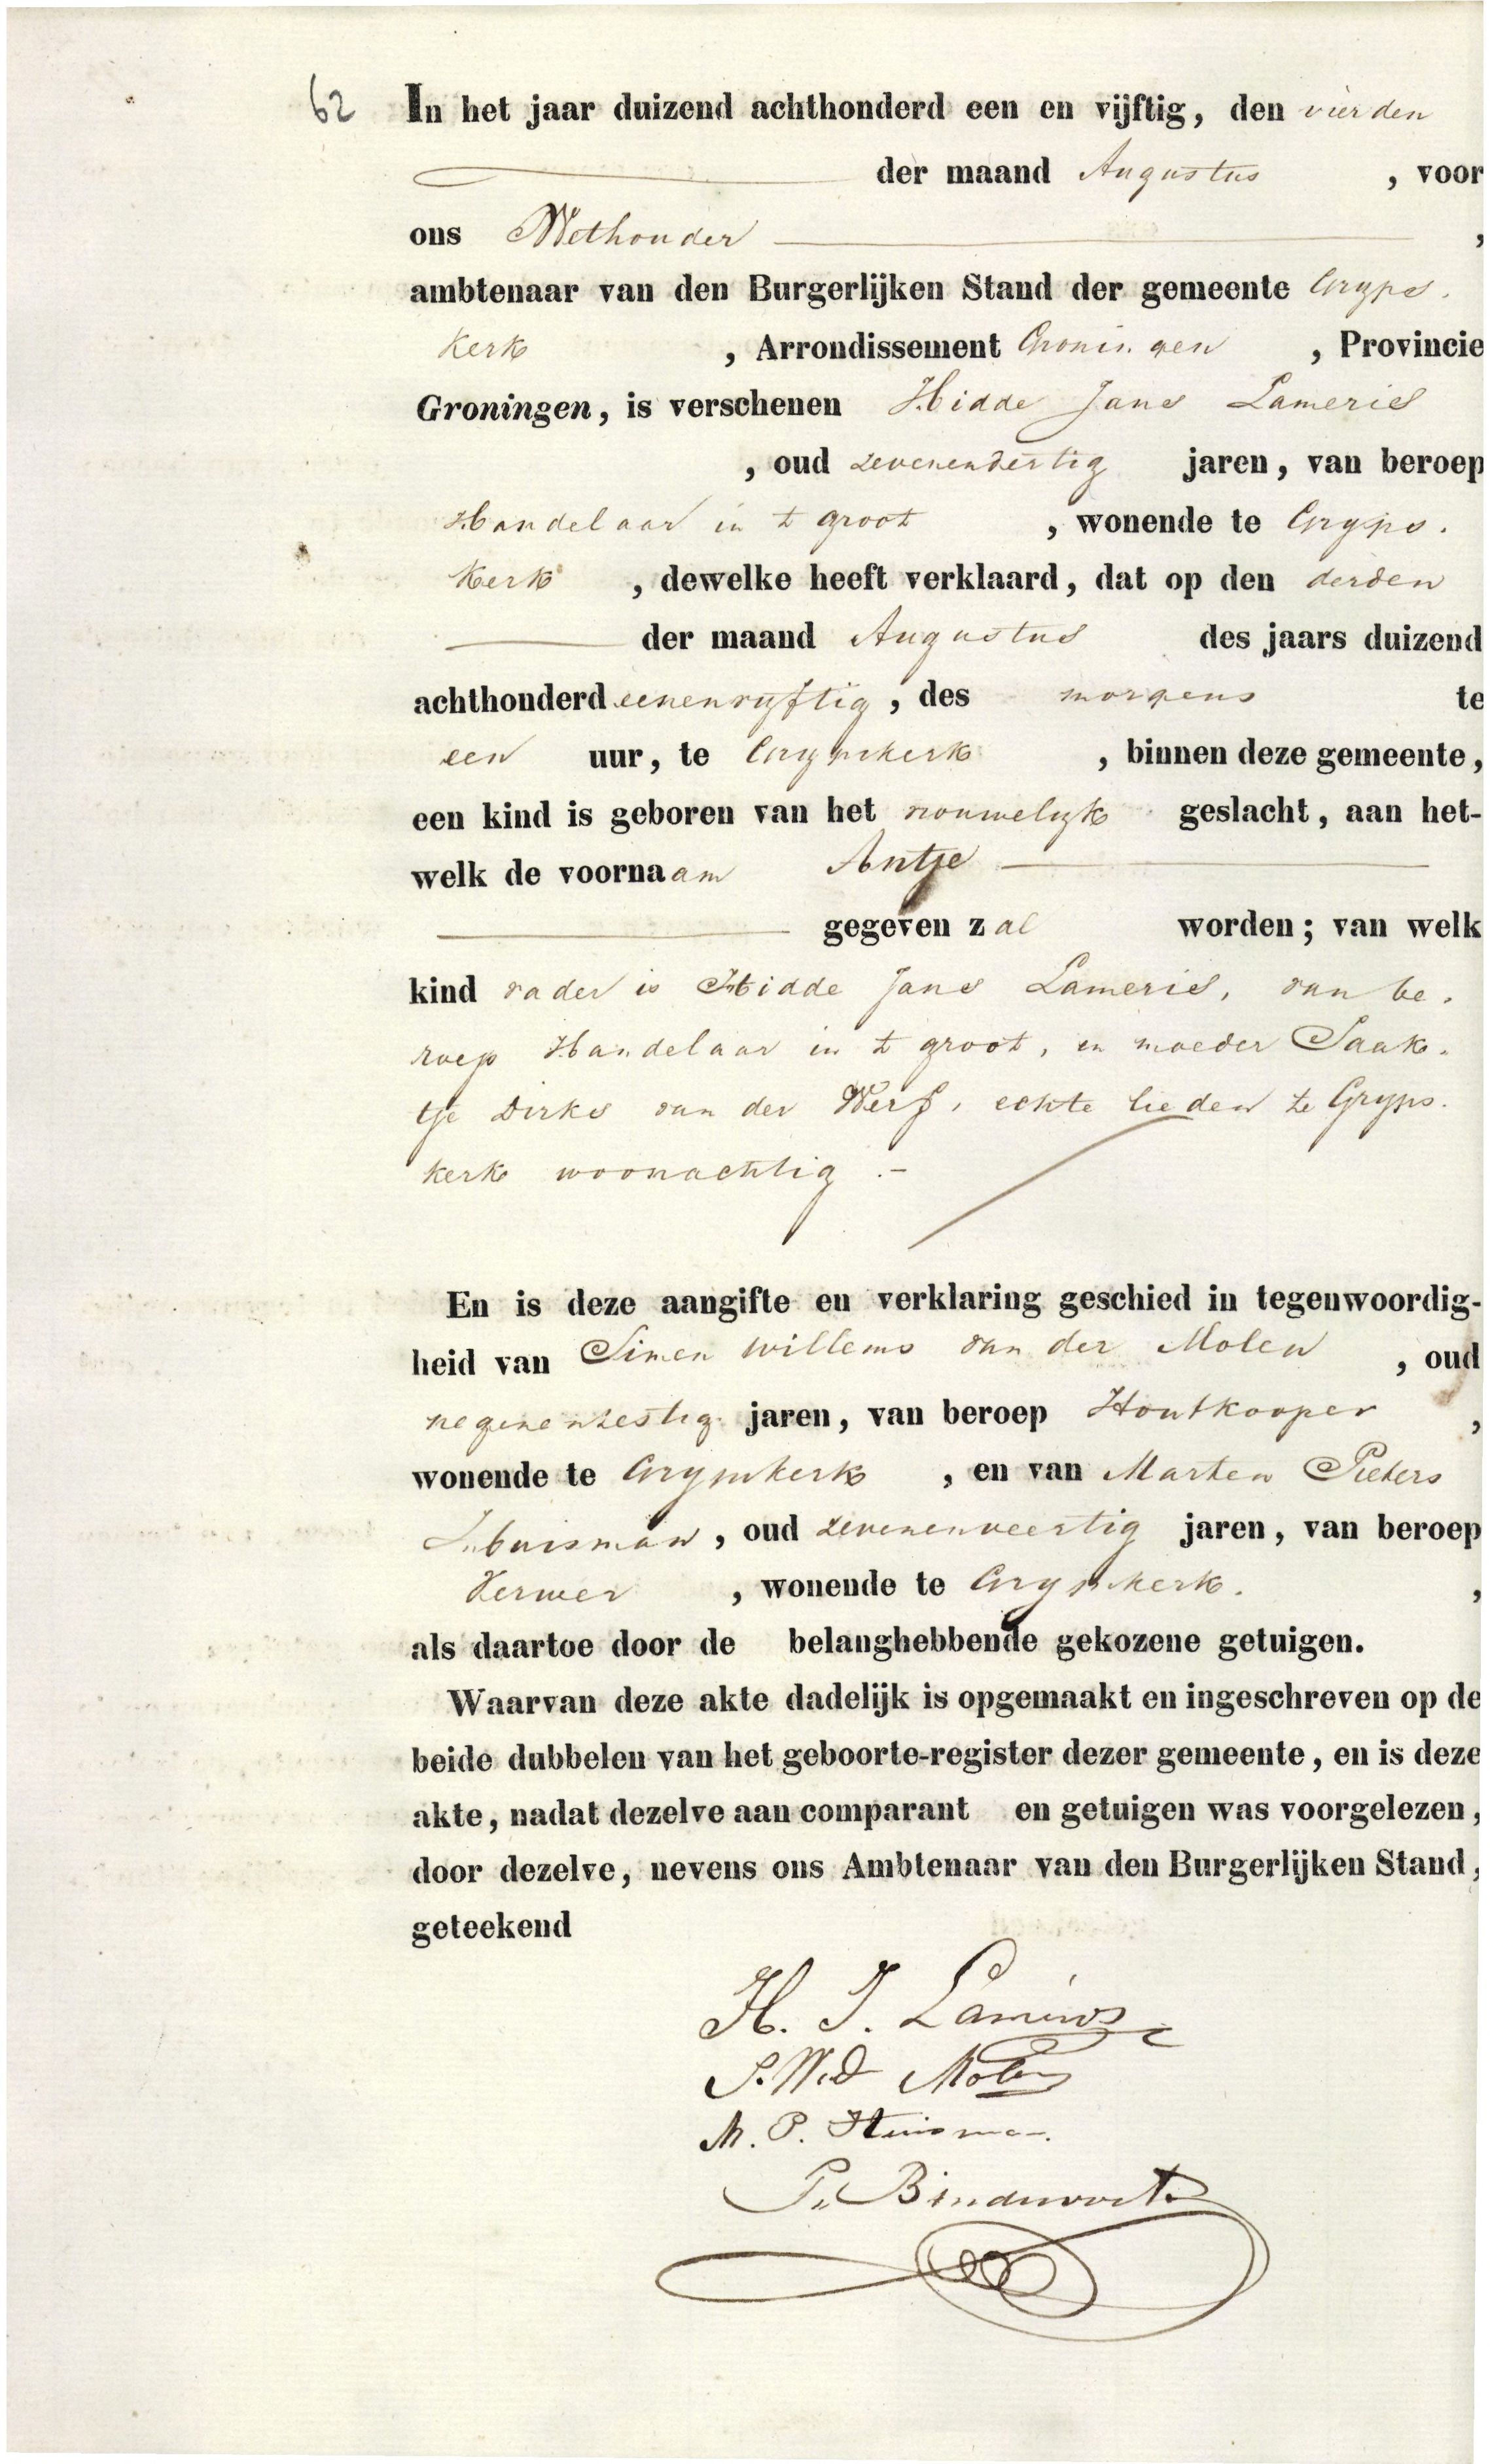 62 In het jaar duizend achthonderd een en vijftig, den vierden
der maand Augustus , voor
ons Wethouder ,
ambtenaar van den Burgerlijken Stand der gemeente Gryps.
kerk , Arrondissement Groningen , Provincie
Groningen, is verschenen Hidde Jans Lameris
, oud zevenendertig jaren, van beroep
Handelaar in t groot , wonende te Gryps.
kerk , dewelke heeft verklaard, dat op den derden
der maand Augustus des jaars duizend
achthonderd eenenvyftig , des morgens te
een uur, te Grypskerk , binnen deze gemeente,
een kind is geboren van het vrouwelyk geslacht, aan het-
welk de voornaam Antje
gegeven zal worden; van welk
kind vader is Hidde Jans Lameris, van be.
roep Handelaar in t groot, en moeder Saak.
tje Dirks van der Werf, echte lieden te Gryps.
kerk woonachtig .-
En is deze aangifte en verklaring geschied in tegenwoordig-
heid van Simen Willems van der Molen , oud
negenenzestig jaren, van beroep Houtkooper ,
wonende te Grypskerk , en van Marten Pieters
Huisman , oud zevenenveertig jaren, van beroep
Verwer , wonende te Grypskerk. ,
als daartoe door de belanghebbende gekozene getuigen.
Waarvan deze akte dadelijk is opgemaakt en ingeschreven op de
beide dubbelen van het geboorte-register dezer gemeente, en is deze
akte, nadat dezelve aan comparant en getuigen was voorgelezen,
door dezelve, nevens ons Ambtenaar van den Burgerlijken Stand,
geteekend
H. J. Lameris
S. W. d Molen
M. P. Huisman
P. Bindervoet